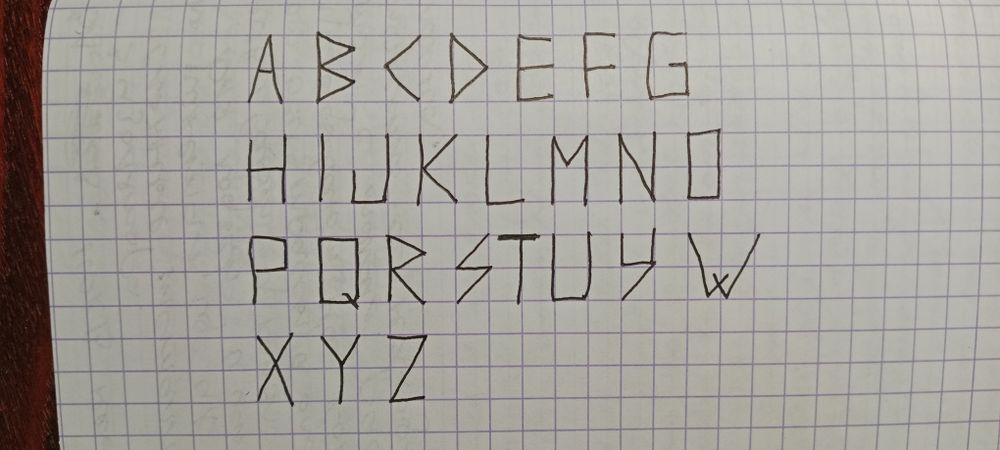 A B C D E F G
H I J K L M N O
P Q R S T U Y W
X Y Z